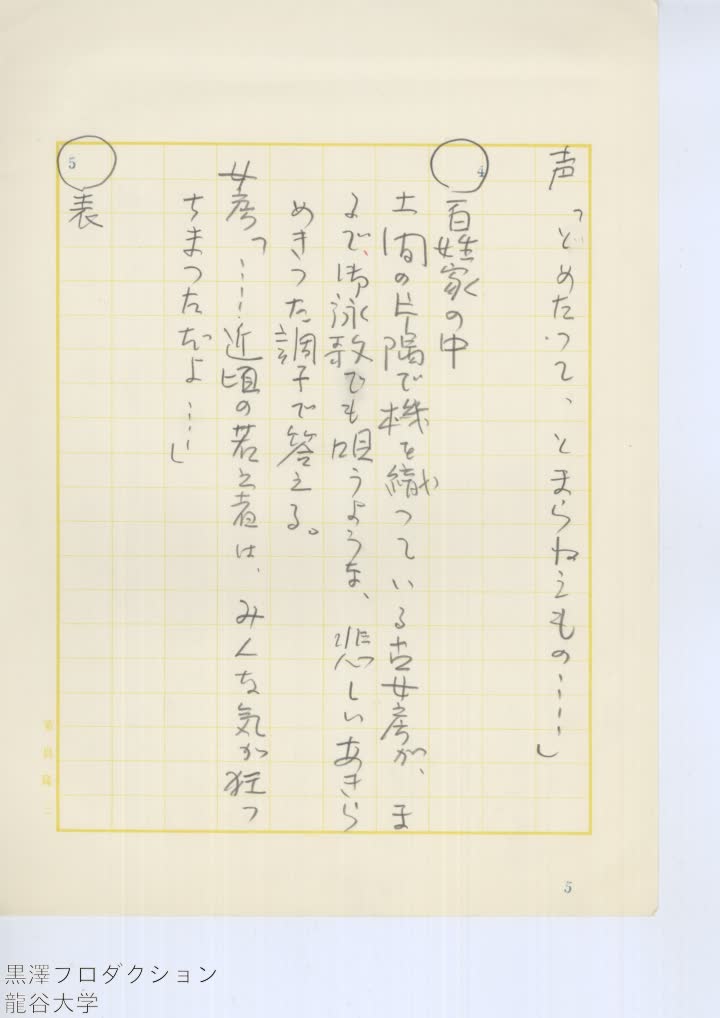 声「とめたって、とまらねえもの……」
4 百姓家の中
土間の片隅で機を織っている古女房が、ま
るで、御詠歌でも唄うような、悲しいあきら
めきった調子で答える。
女房「……近頃の若え者は、みんな気が狂っ
ちまっただよ……」
5 表
5
黒澤プロダクション
龍谷大学